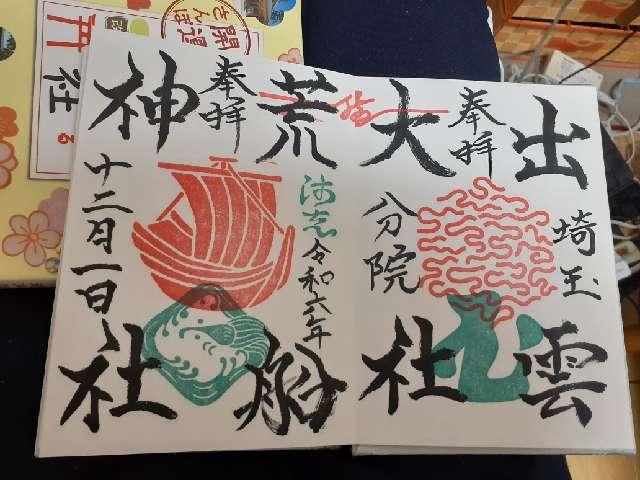 出雲
大社
奉拝
埼玉
分院
荒船
神社
奉拝
令和六年
十二月一日
開運
さんぽ
社